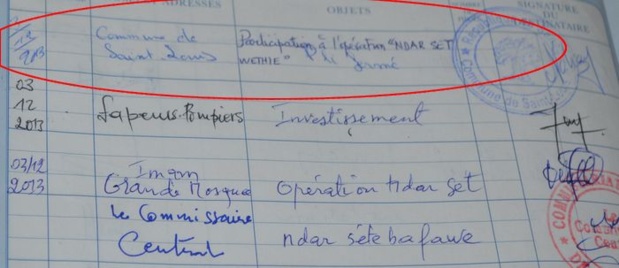 ADRESSES
OBJETS
SIGNATURE
DU
DESTINATAIRE
13
2013
Commune de
Saint Louis
Participation à l'opération "NDAR SET
WETHIE"
Commune de Saint
03
12
2013
Sapeurs-Pompiers
Investissement
03/12
2013
Imam
Grande Mosquée
Opération ndar set
le Commissaire
Central
ndar sétebafawe